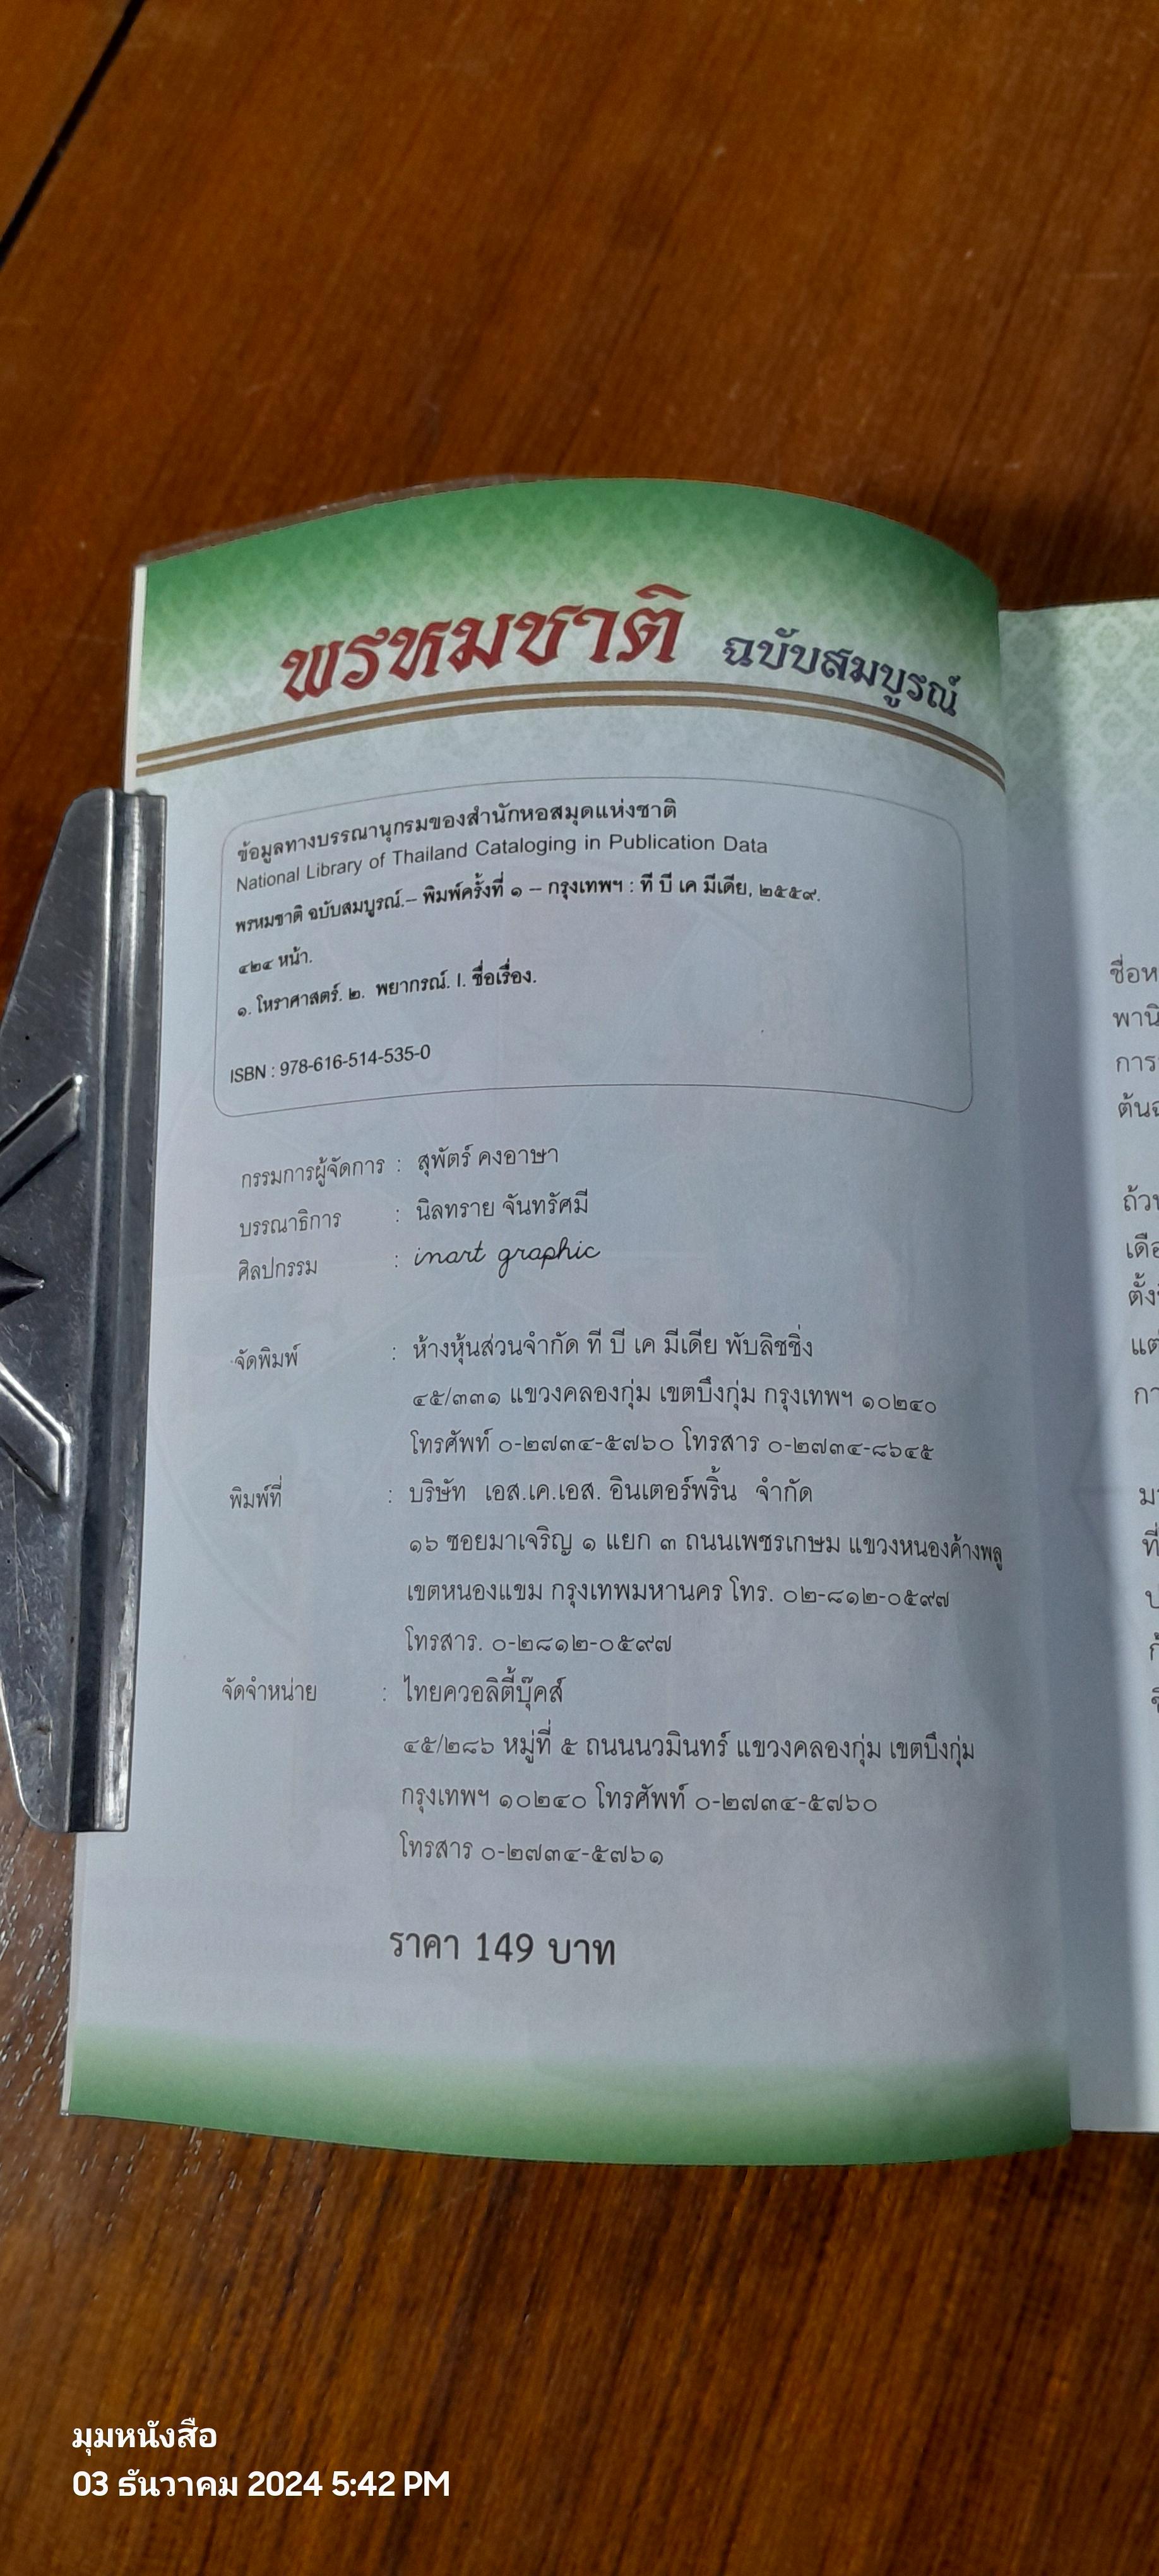 พรหมชาติ ฉบับสมบูรณ์
ข้อมูลทางบรรณานุกรมของสำนักหอสมุดแห่งชาติ
National Library of Thailand Cataloging in Publication Data
พรหมชาติ ฉบับสมบูรณ์.– พิมพ์ครั้งที่ ๑ – กรุงเทพฯ : ที บี เค มีเดีย, ๒๕๕๙.
๔๒๔ หน้า.
๑. โหราศาสตร์. ๒. พยากรณ์. I. ชื่อเรื่อง.
ISBN : 978-616-514-535-0
กรรมการผู้จัดการ : สุพัตร์ คงอาษา
บรรณาธิการ : นิลทราย จันทรัศมี
ศิลปกรรม : inart graphic
จัดพิมพ์ : ห้างหุ้นส่วนจำกัด ที บี เค มีเดีย พับลิชชิ่ง
๔๕/๓๓๑ แขวงคลองกุ่ม เขตบึงกุ่ม กรุงเทพฯ ๑๐๒๔๐
โทรศัพท์ ๐-๒๗๓๔-๕๗๖๐ โทรสาร ๐-๒๗๓๔-๘๖๔๕
พิมพ์ที่ : บริษัท เอส.เค.เอส. อินเตอร์พริ้น จำกัด
๑๖ ซอยมาเจริญ ๑ แยก ๓ ถนนเพชรเกษม แขวงหนองค้างพลู
เขตหนองแขม กรุงเทพมหานคร โทร. ๐๒-๘๑๒-๐๕๙๗
โทรสาร. ๐-๒๘๑๒-๐๕๙๗
จัดจำหน่าย : ไทยควอลิตี้บุ๊คส์
๔๕/๒๘๖ หมู่ที่ ๕ ถนนนวมินทร์ แขวงคลองกุ่ม เขตบึงกุ่ม
กรุงเทพฯ ๑๐๒๔๐ โทรศัพท์ ๐-๒๗๓๔-๕๗๖๐
โทรสาร ๐-๒๗๓๔-๕๗๖๑
ราคา 149 บาท
มุมหนังสือ
03 ธันวาคม 2024 5:42 PM